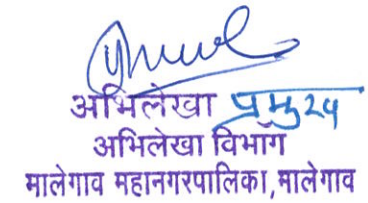 अभिलेखा प्रमुख
अभिलेखा विभाग
मालेगाव महानगरपालिका, मालेगाव